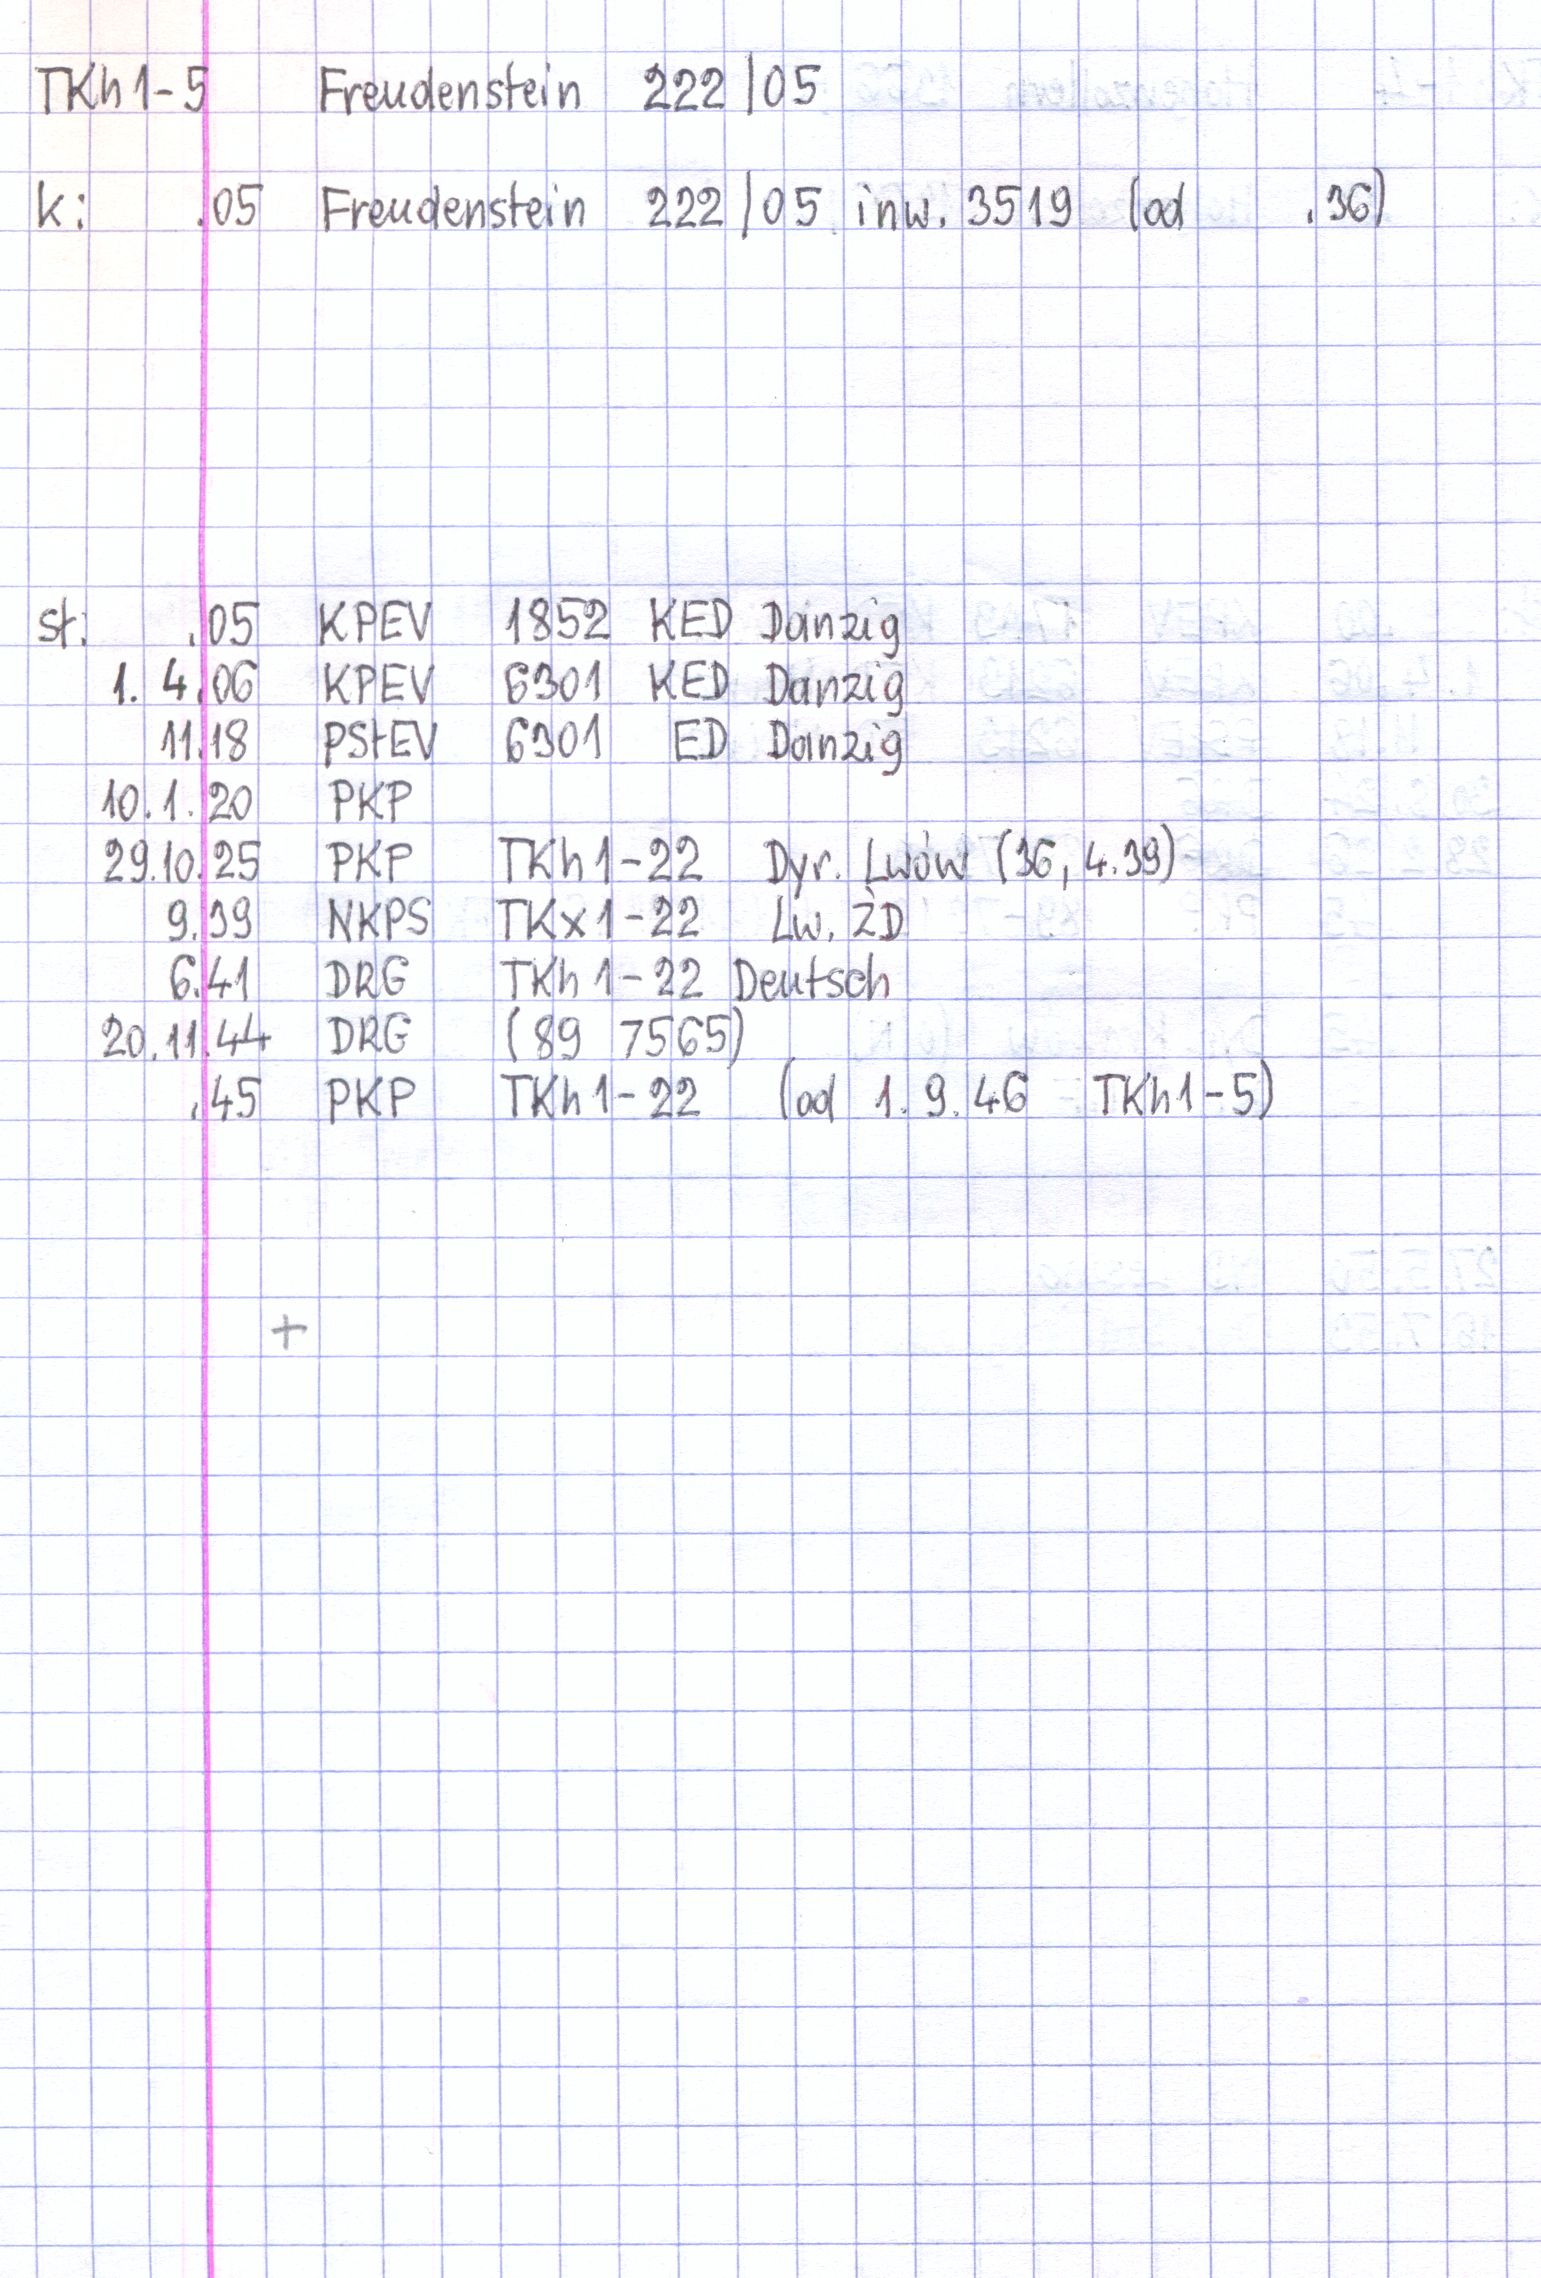 TKh1-5 Freudenstein 222/05
k: .05 Freudenstein 222/05 inw. 3519 (od .36)
st: .05 KPEV 1852 KED Danzig
1. 4.06 KPEV 6301 KED Danzig
11.18 PStEV 6301 ED Danzig
10.1.20 PKP
29.10.25 PKP TKh1-22 Dyr. Lwów (36, 4.39)
9.39 NKPS TKx1-22 Lw. ŻD
6.41 DRG TKh1-22 Deutsch
20.11.44 DRG (89 7565)
.45 PKP TKh1-22 (od 1.9.46 TKh1-5)
+